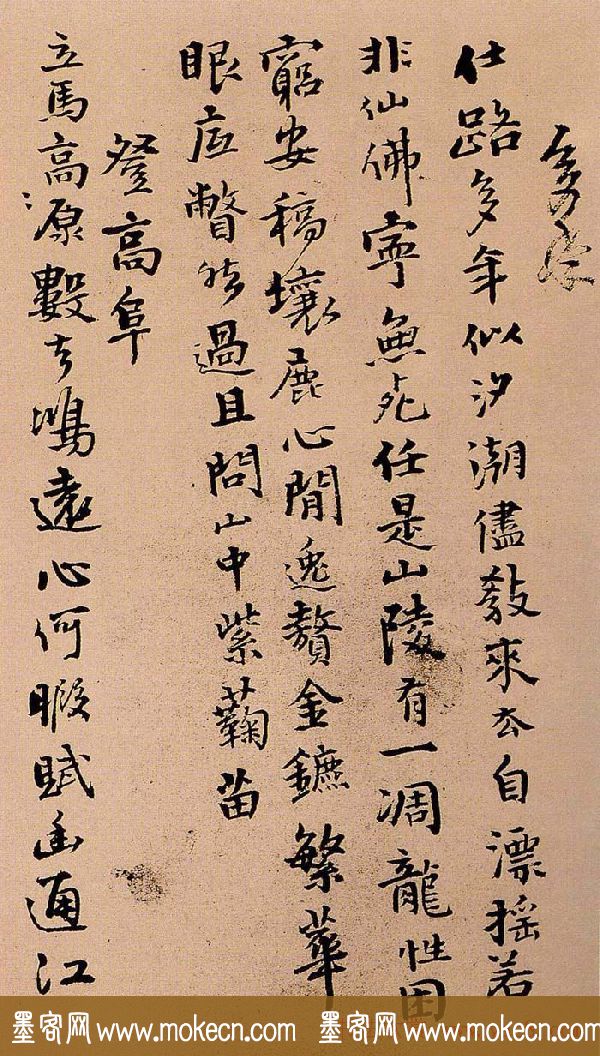 仕路多年似汐潮儘教來去自漂摇若
非仙佛寧無死任是山陵有一凋龍性困
窮安稿壤鹿心閒逸贅金鑣繁華
眼底瞥然過且問山中紫蘜苗
登高阜
立馬高源數去鴻遠心何暇賦幽通江
墨客网 www.mokecn.com 墨客网 www.mokecn.com